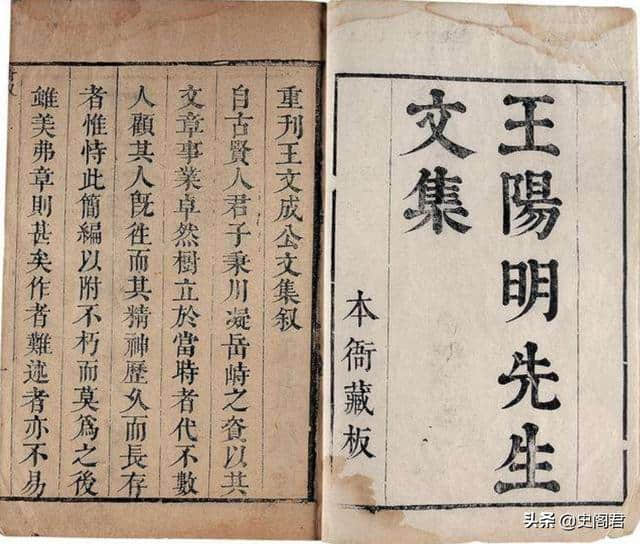 王陽明先生
文集
本衙藏板
重刊王文成公文集叙
自古賢人君子秉川凝岳峙之資以其
文章事業卓然樹立於當時者代不數
人顧其人旣徃而其精神歷久而長存
者惟恃此簡編以附不朽而莫為之後
雖美弗章則甚矣作者難述者亦不易
头条 @史阁君